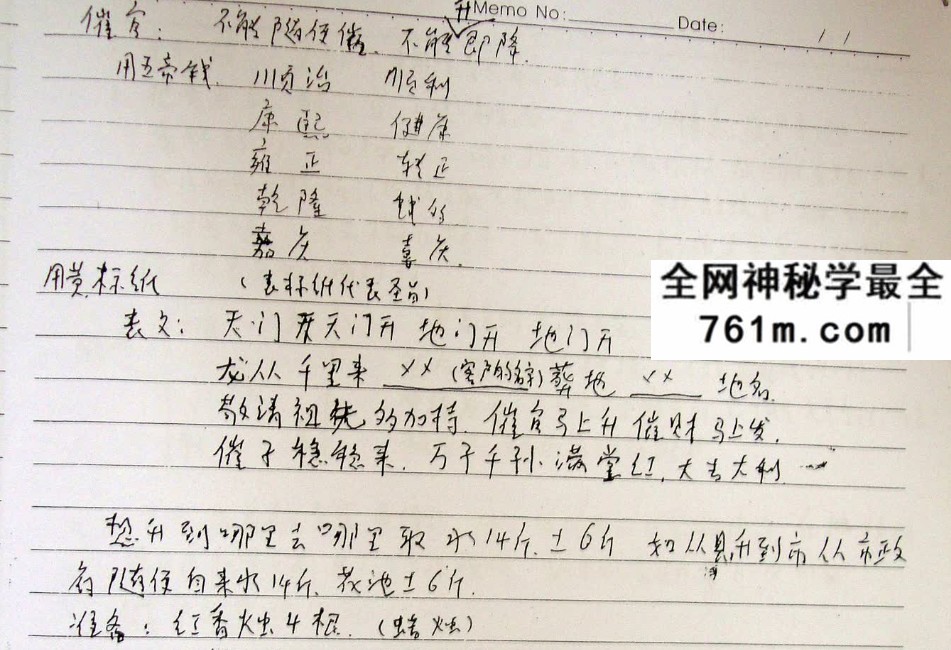 Memo No: Date: / /
催官: 不能随便催. 不能升即降.
用五帝钱 顺治 顺利
康熙 健康
雍正 转正
乾隆
嘉庆 喜庆.
用黄标纸 (表标纸代表圣旨)
全网神秘学最全
761m.com
表文: 天门开天门开 地门开 地门开
龙从千里来 ×× (客户的名字) 葬地 ×× 地名.
敬请祖先多加持. 催官马上升 催财马上发.
催子稳稳来. 万子千孙满堂红, 大吉大利
想升到哪里去哪里取水14斤. 土6斤 如从县升到市 从市政
府随便自来水14斤. 花池土6斤.
准备: 红香烛4根. (蜡烛)